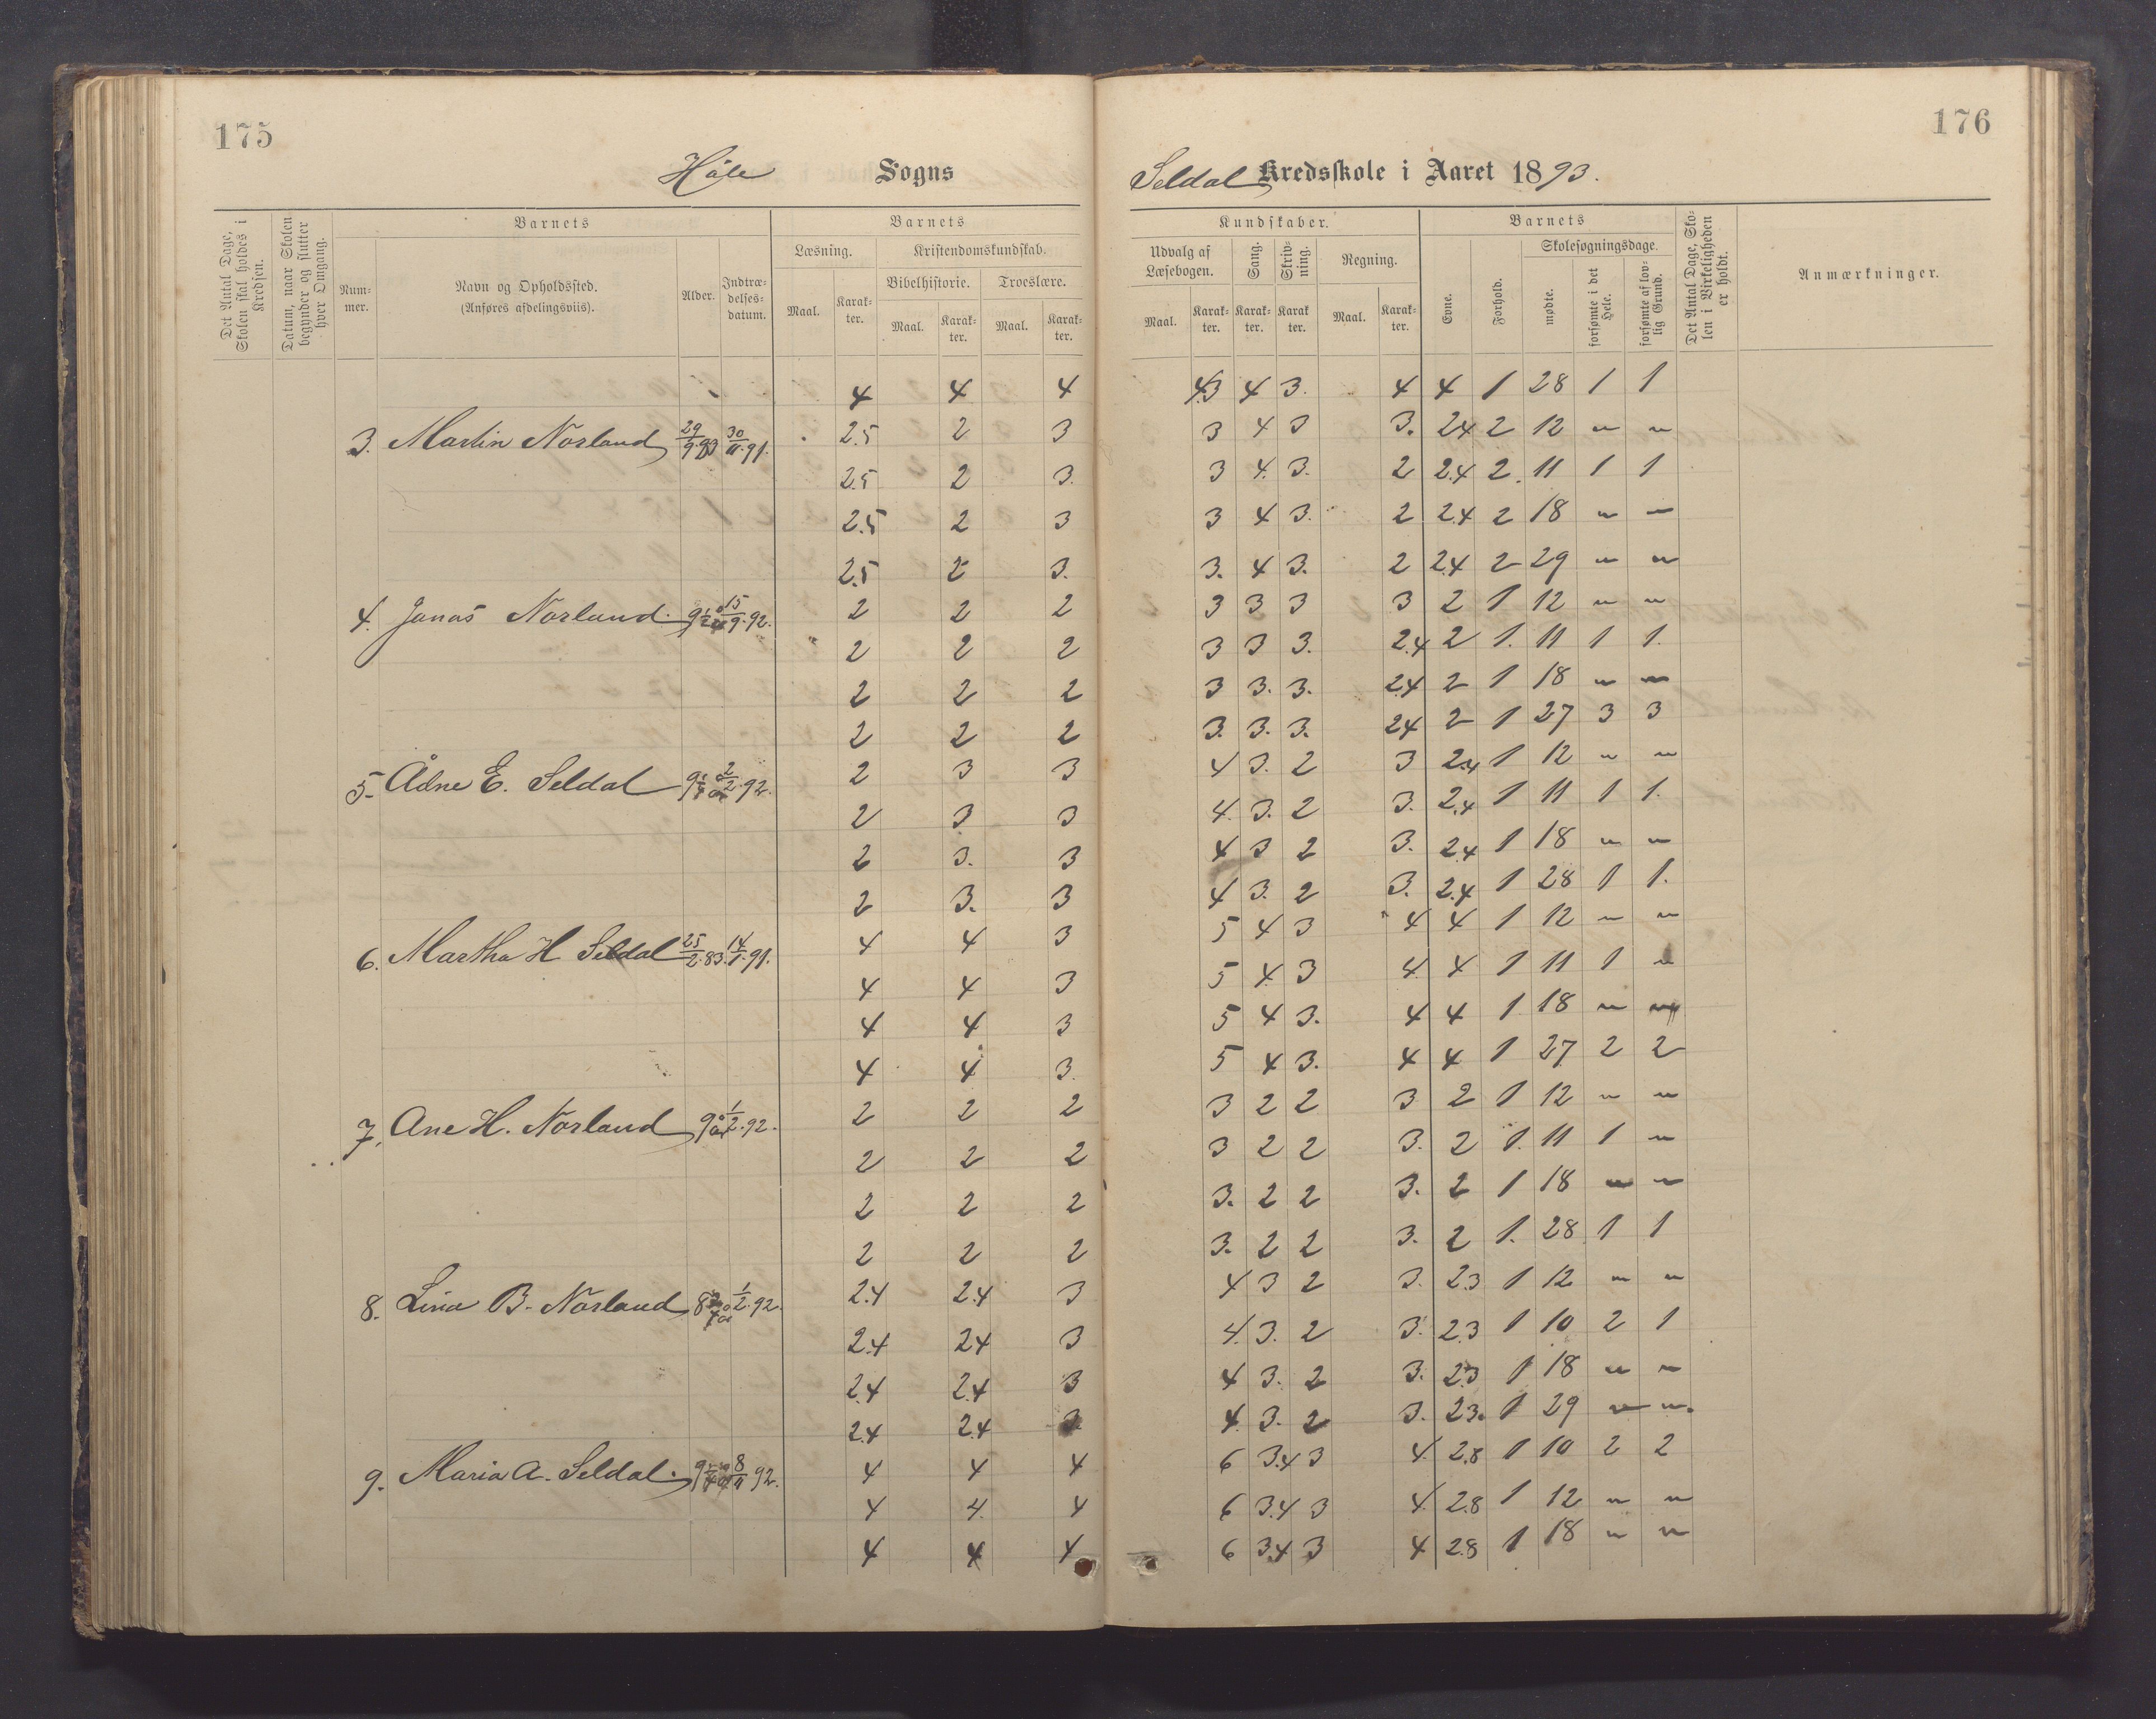 175
176
Håle Sogns
Seldal Kredsskole i Aaret 1893.
Det Antal Dage, Skolen skal holdes i Kredsen.
Datum, naar Skolen begynder og slutter hver Omgang.
Barnets
Num-
mer.
Navn og Opholdssted.
(Anføres afdelingsviis).
Alder.
Indtræ-
delses-
datum.
Barnets
Læsning.
Maal.
Karak-
ter.
Kristendomskundskab.
Bibelhistorie.
Maal.
Karak-
ter.
Troeslære.
Maal.
Karak-
ter.
Kundskaber.
Udvalg af
Læsebogen.
Maal.
Karak-
ter.
Sang.
Karak-
ter.
Skriv-
ning.
Karak
ter.
Regning.
Maal.
Karak-
ter.
Barnets
Evne.
Forhold.
Skolesøgningsdage.
mødte.
forsømte i det Hele.
forsømte af lov-
lig Grund.
Det Antal Dage, Sko-
len i Virkeligheden
er holdt.
Anmærkninger.
4 4 4 4.3 4 3. 4 4 1 28 1 1
3. Martin Norland 29/9.83 30/11.91. 2.5 2 3 3 4 3 3. 2.4 2 12 " "
2.5 2 3. 3 4. 3. 2 2.4 2. 11 1 1
2.5 2 3 3 4 3. 2 2.4 2 18 " "
2.5 2 3. 3. 4 3. 2 2.4 2 29 " "
4. Jonas Norland. 15/9.92. 2 2 2 3 3 3 3 2 1 12 " "
2 2 2 3 3 3. 2.4 2 1. 11 1 1.
2 2 2 3 3. 3. 2.4 2 1 18 " "
2 2 2 3. 3. 3. 2.4 2 1 27 3 3
5. Ådne E. Seldal 2/2.92. 2 3 3 4 3. 2 3 2.4 1 12 " "
2 3 3 4. 3. 2 3. 2.4 1 11 1 1.
2 3. 3 4 3 2 3. 2.4 1 18 " "
2 3. 3 4 3. 2 3. 2.4 1 28 1 1.
6. Martha H Seldal 25/2.83. 14/1.91. 4 4 3 5 4 3 4 4 1 12 " "
4 4 3 5 4 3 4. 4 1 11 1 "
4 4 3 5 4 3. 4 4 1 18 " "
4 4 3. 5 4 3. 4 4 1 27 2 2
7. Ane H. Norland 9 1/2.92. 2 2 2 3 2 2 3 2 1 12 " "
2 2 2 3 2 2 3. 2 1. 11 1 "
2 2 2 3. 2 2 3. 2 1 18 " "
2 2 2 3. 2 2 3. 2 1. 28 1 1
8. Lina B. Norland 1/2.92. 2.4 2.4 3 4 3 2 3. 2.3 1 12 " "
2.4 2.4 3 4. 3. 2 3. 2.3 1 10 2 1
2.4 2.4 3 4 3. 2 3. 2.3 1 18 " "
2.4 2.4 3. 4. 3. 2 3. 2.3. 1 29 " ".
9. Maria A. Seldal. 8/11 92. 4 4 4 6 3.4 3 4. 2.8 1 10 2 2
4 4. 4 6 3.4 3 4. 2.8 1 12 " "
4 4 4 6 3.4 3 4 2.8 1 18 " "